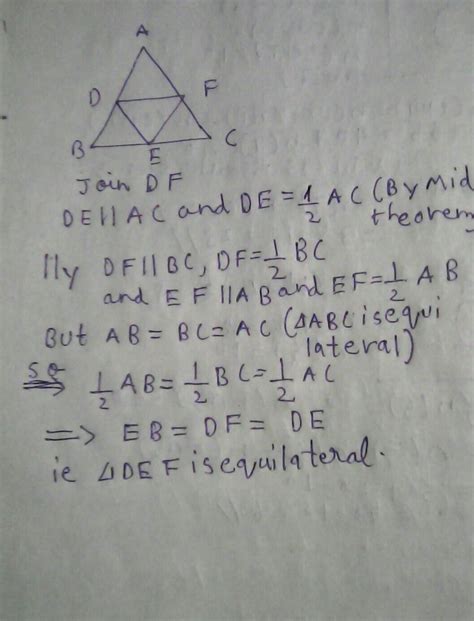 A
D F
B E C
Join DF
DE||AC and DE=1/2 AC (By Mid
theorem
||ly DF||BC, DF=1/2 BC
and EF||AB and EF=1/2 AB
But AB = BC = AC (ΔABC is equi
lateral)
So
⇒ 1/2 AB = 1/2 BC = 1/2 AC
=> EB = DF = DE
ie ΔDEF is equilateral.